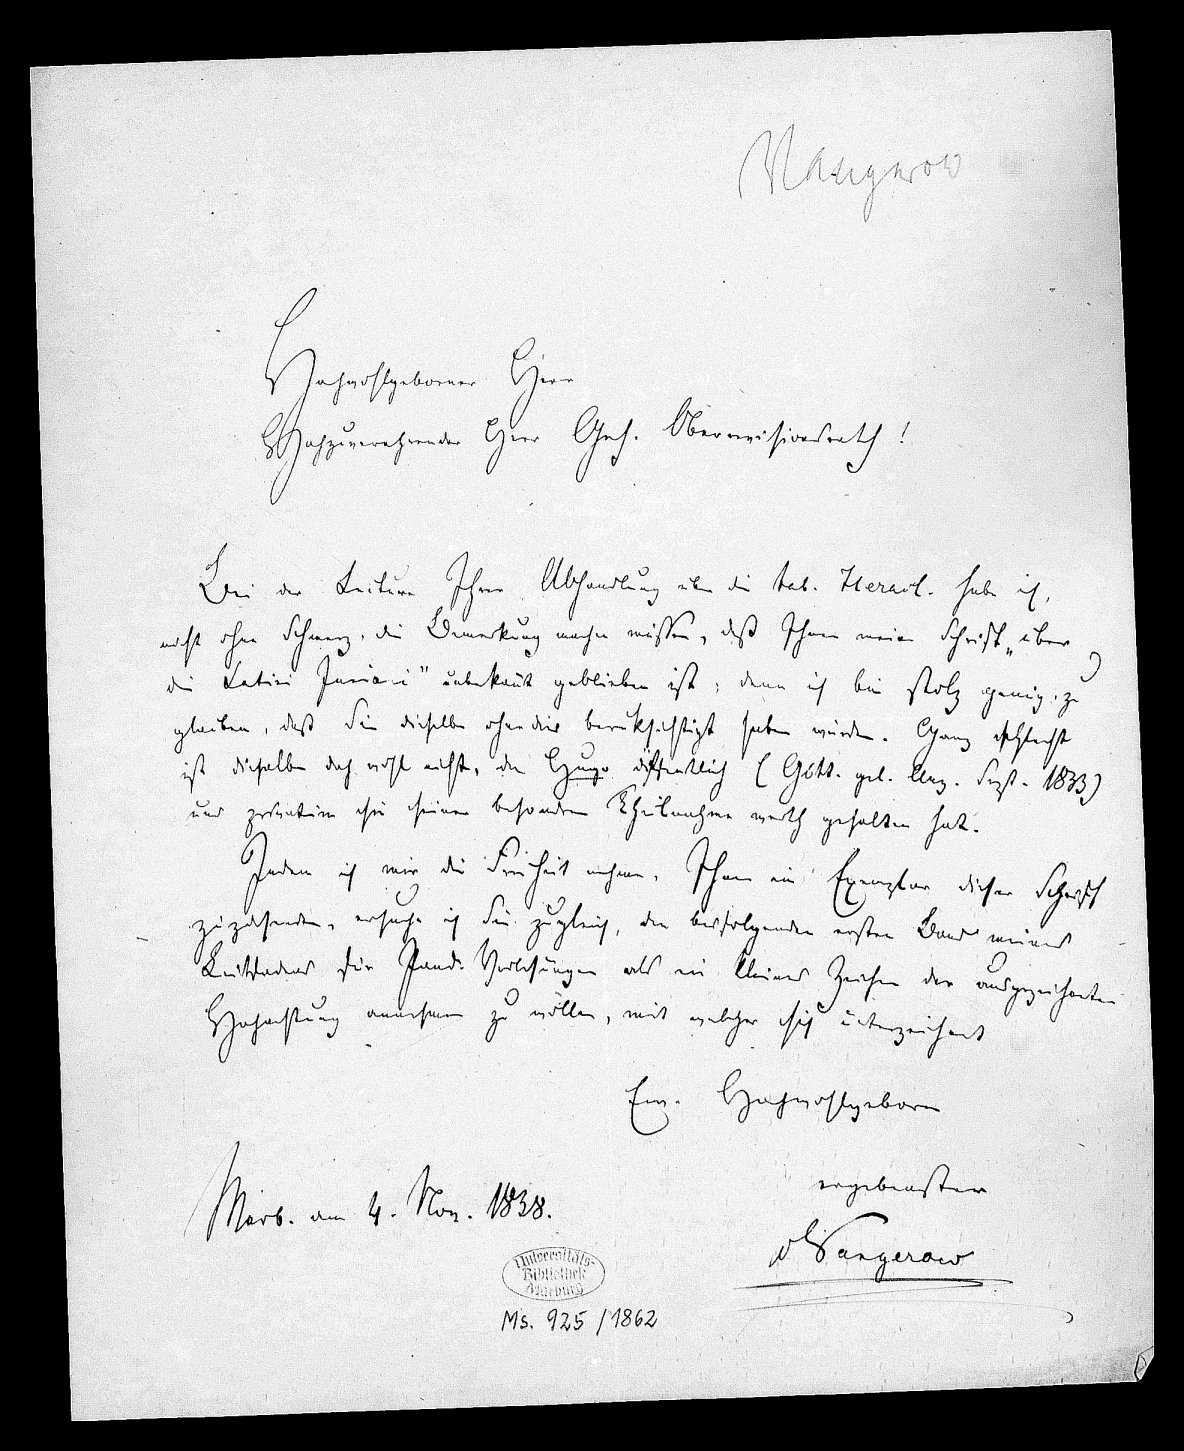 Vangerow
Hochwohlgeborner Herr
Hochzuverehrender Herr Geh. Oberrevisionsrath!
Bei der Lectüre Ihrer Abhandlung über die tab. Heracl. habe ich,
nicht ohne Schmerz, die Bemerkung machen müssen, daß Ihnen meine Schrift „über
die Latini Juniani" unbekannt geblieben ist; denn ich bin stolz genug, zu
glauben, daß Sie dieselbe ohnedies berücksichtigt haben würden. Ganz schlecht
ist dieselbe doch wohl nicht, da Hugo öffentlich (Gött. gel. Anz. 1833)
und privatim sie seiner besondren Theilnahme werth gehalten hat.
Indem ich mir die Freiheit nehme, Ihnen ein Exemplar dieser Schrift
zuzusenden, ersuche ich Sie zugleich, den beifolgenden ersten Band meines
Leitfadens für Pand. Vorlesungen als ein kleines Zeichen der ausgezeichneten
Hochachtung annehmen zu wollen, mit welcher sich unterzeichnet
Ew. Hochwohlgeboren
ergebenster
v Vangerow
Marb. am 4. Nov. 1838.
Universitäts-
Bibliothek
Marburg
Ms. 925/1862